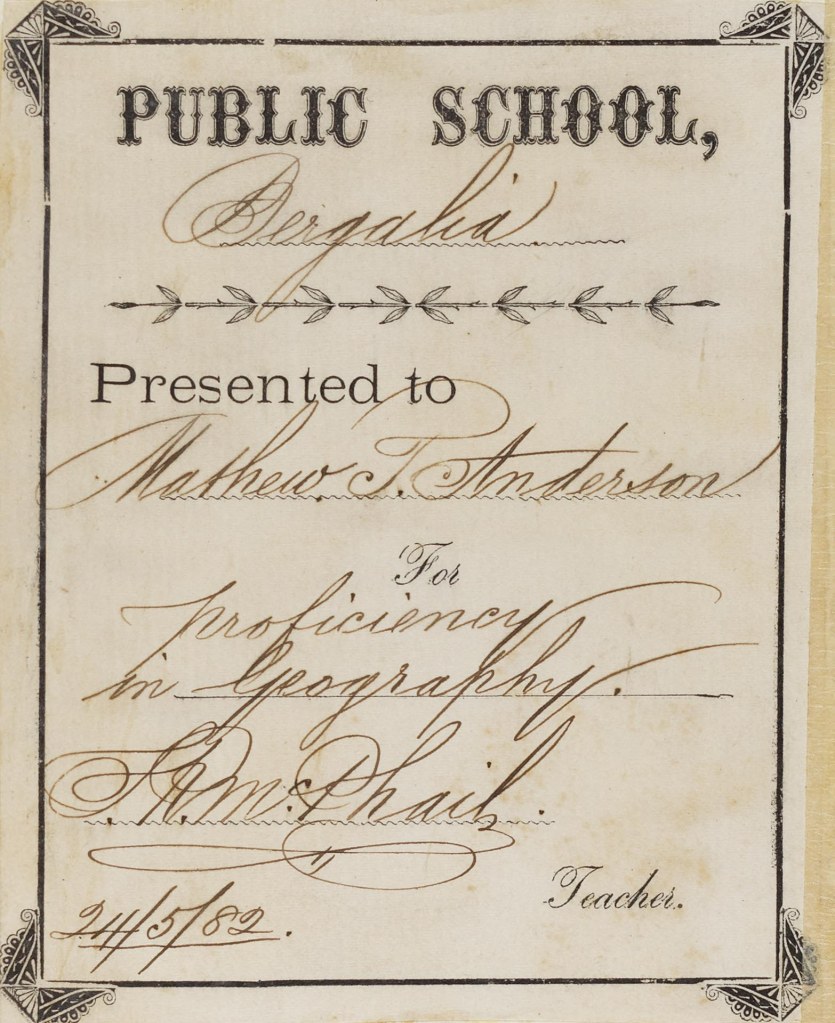 PUBLIC SCHOOL,
Bergalia
Presented to
Mathew T. Anderson
For
proficiency
in Geography.
J. A. McPhail.
Teacher.
24/5/82.